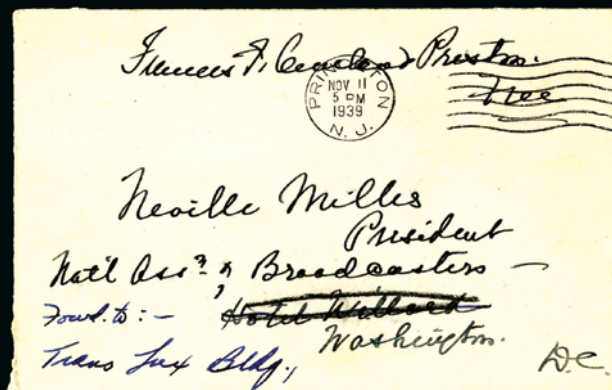 Frances F. Cleveland Preston.
Free
PRINCETON
NOV 11
5 PM
1939
N. J.
Neville Miller
President
Nat'l Ass'n of Broadcasters —
Fowd. to : — Hotel Willard
Washington.
Trans Lux Bldg., D.C.